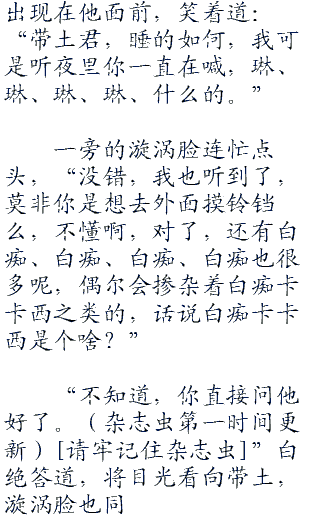 出现在他面前，笑着道：
“带土君，睡的如何，我可
是听夜里你一直在喊，琳、
琳、琳、琳、什么的。”
一旁的漩涡脸连忙点
头，“没错，我也听到了，
莫非你是想去外面摸铃铛
么，不懂啊，对了，还有白
痴、白痴、白痴、白痴也很
多呢，偶尔会掺杂着白痴卡
卡西之类的，话说白痴卡卡
西是个啥？”
“不知道，你直接问他
好了。（杂志虫第一时间更
新）[请牢记住杂志虫]”白
绝答道，将目光看向带土，
漩涡脸也同